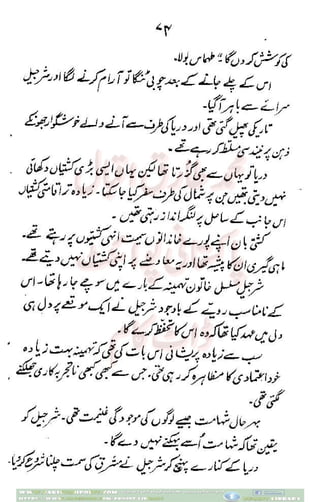 ۷۴
کی کوشش کر دں گا۔" طہماس بولا۔
اس کے چلے جانے کے بعد چوبی مُنگا تو آرام کرنے لگا اور شرجیل
سرائے سے باہر آگیا۔
تاریکی پھیل گئی تھی اور دریا کی طرف سے آنے والے خوشگوار جھونکے
ذہن پر نیند سی مسلط کر رہے تھے۔
دریا تو یہاں سے بھی گزرتا تھا لیکن یہاں ایسی بڑی کشتیاں دکھائی
نہیں دیتی تھیں جن پر شمال کی طرف سفر کیا جا سکتا۔ زیادہ تر اقامتی کشتیاں
اس جانب کے ساحل پر لنگر انداز رہتی تھیں۔
کشتی بان اپنے پورے خاندانوں سمیت انہی کشتیوں پر رہتے تھے۔
ماہی گیری ان کا پیشہ تھا اور یہ معاوضے پر اپنی کشتیاں نہیں دیتے تھے۔
شرجیل مسلسل خاتون تہمینہ کے بارے میں سوچے جا رہا تھا۔ اس
کے نامناسب رویے کے باوجود شرجیل نے ایک موقعے پر دل ہی
دل میں عہد کیا تھا کہ وہ اس کا تحفظ کرے گا۔
سب سے زیادہ پریشانی اس بات کی تھی کہ تہمینہ بہت زیادہ
خود اعتمادی کا مظاہرہ کر رہی تھی، جس سے کبھی کبھی ناتجربہ کاری جھلکنے
لگتی تھی۔
بہر حال شہامت جیسے لوگوں کی موجودگی غنیمت تھی۔ شرجیل کو
یقین تھا کہ شہامت اُسے بہکنے نہیں دے گا۔
دریا کے کنارے پہنچ کر شرجیل نے مشرق کی سمت چلنا شروع کر دیا۔